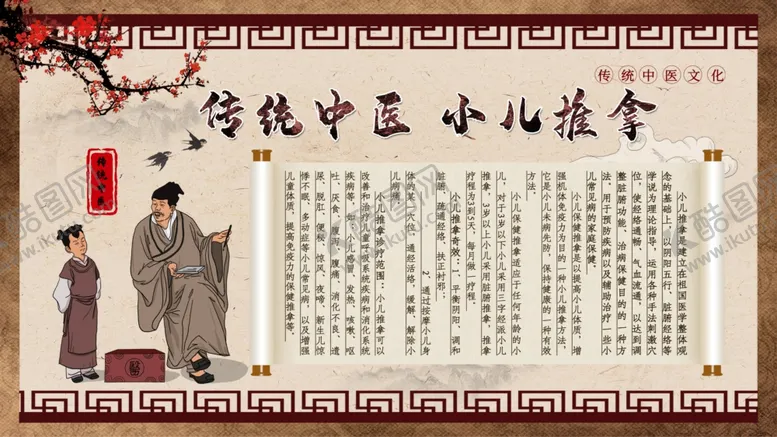 传统中医文化
传统中医 小儿推拿
传统中医
小儿推拿是建立在祖国医学整体观
念的基础上，以阴阳五行、脏腑经络等
学说为理论指导，运用各种手法刺激穴
位，使经络通畅、气血流通，以达到调
整脏腑功能、治病保健目的的一种方
法，用于预防疾病以及辅助治疗一些小
儿常见病的家庭保健。
小儿保健推拿是以提高小儿体质，增
强机体免疫力为目的一种小儿推拿方法，
它是小儿未病先防，保持健康的一种有效
方法。
小儿保健推拿适应于任何年龄的小
儿，对于3岁以下小儿采用三字经派小儿
推拿，3岁以上小儿采用脏腑推拿，推拿
疗程为3到5天，每月做一疗程。
小儿推拿奇效：1、平衡阴阳、调和
脏腑、疏通经络、扶正祛邪；
2、通过按摩小儿身
体的某一穴位，通经活络，缓解、解除小
儿病痛。
小儿推拿诊疗范围：小儿推拿可以
改善和治疗儿童呼吸系统疾病和消化系统
疾病等，如：小儿感冒、发热、咳嗽、呕
吐、厌食、腹泻、腹痛、消化不良、遗
尿、脱肛、便秘、惊风、夜啼、新生儿惊
悸不眠、多动症等小儿常见病，以及增强
儿童体质、提高免疫力的保健推拿等。
醫
酷图网